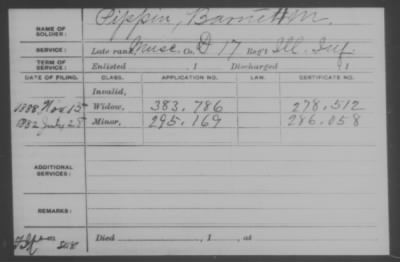 NAME OF SOLDIER: Pippin, Barnett M.
SERVICE: Late rank, Musc, Co. D 17 Reg't Ill. Inf
TERM OF SERVICE: Enlisted , 1 Discharged , 1
DATE OF FILING. CLASS. APPLICATION NO. LAW. CERTIFICATE NO.
Invalid,
1888 Nov 15 Widow, 383.786 278.512
1882 July 28 Minor, 295.169 286.058
ADDITIONAL SERVICES:
REMARKS:
Died , 1 , at